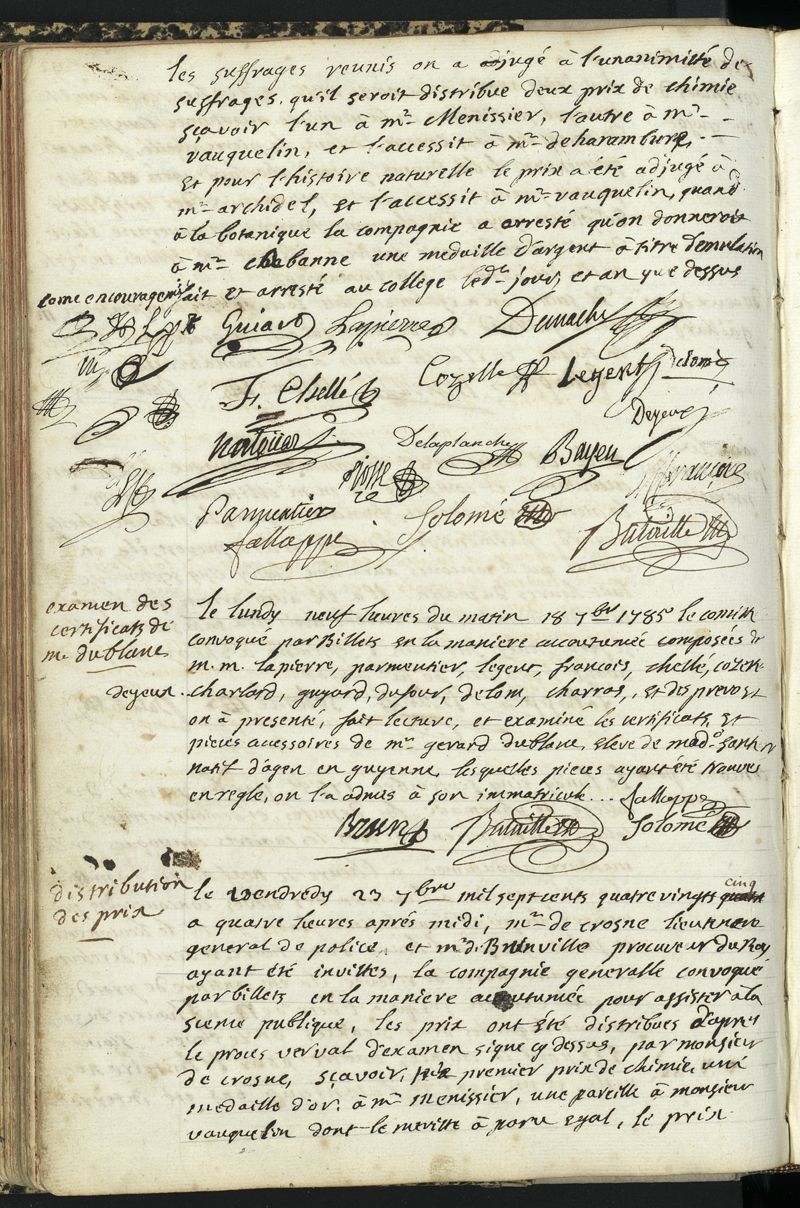 les suffrages reunis on a adjugé à l'unanimitté de
suffrages, qu'il seroit distribué deux prix de chimie
sçavoir l'un à mr. Menissier, l'autre à mr.
vauquelin, et l'accessit à mr. deharambure,
Et pour l'histoire naturelle le prix a été adjugé à
mr. archidel, et l'accessit à mr. vauquelin, quand
à la botanique la compagnie a arresté qu'on donneroit
à mr. chabanne une medaille d'argent à titre d'emulation
come encouragemt fait et arresté au college led. jour, et an que dessus
Guiard Lapierre
F. Chellé Cozette Legent delomé
Deyeux
Delaplanche Bayen
françois
Parmentier Solomé Bataille
fallappe
examen des
certificats de
m. dublanc
deyeux.
le lundy neuf heures du matin 18 7bre 1785 le comitté
convoqué par Billets en la maniere accoutumée composées de
m. m. lapierre, parmentier, legent, françois, chellé, cozette
charlard, guyard, dufour, delom, charras, et desprevost
on à presenté, fait lecture, et examiné les certificats, et
pieces acessoires de mr. gerard dublanc, eleve de mad.
natif d'agen en guyenne, lesquelles pieces ayant été trouvés
en regle, on l'a admis à son immatricule... fallappe
Brun Bataille Solomé
distribution
des prix
le vendredy 23 7bre mil sept cents quatre vingts cinq
a quatre heures aprés midi, mr. de crosne lieutenent
general de police, et mr. de Brunville procureur du Roy
ayant été invittés, la compagnie generalle convoqué
par billets en la maniere accoutumée pour assister à la
seance publique, les prix ont été distribués d'apres
le proces verval d'examen signé cy dessus, par monsieur
de crosne, sçavoir, premier prix de chimie, une
medaille d'or, à mr. menissier, une pareille à monsieur
vauquelin dont le meritte à paru egal, le prix